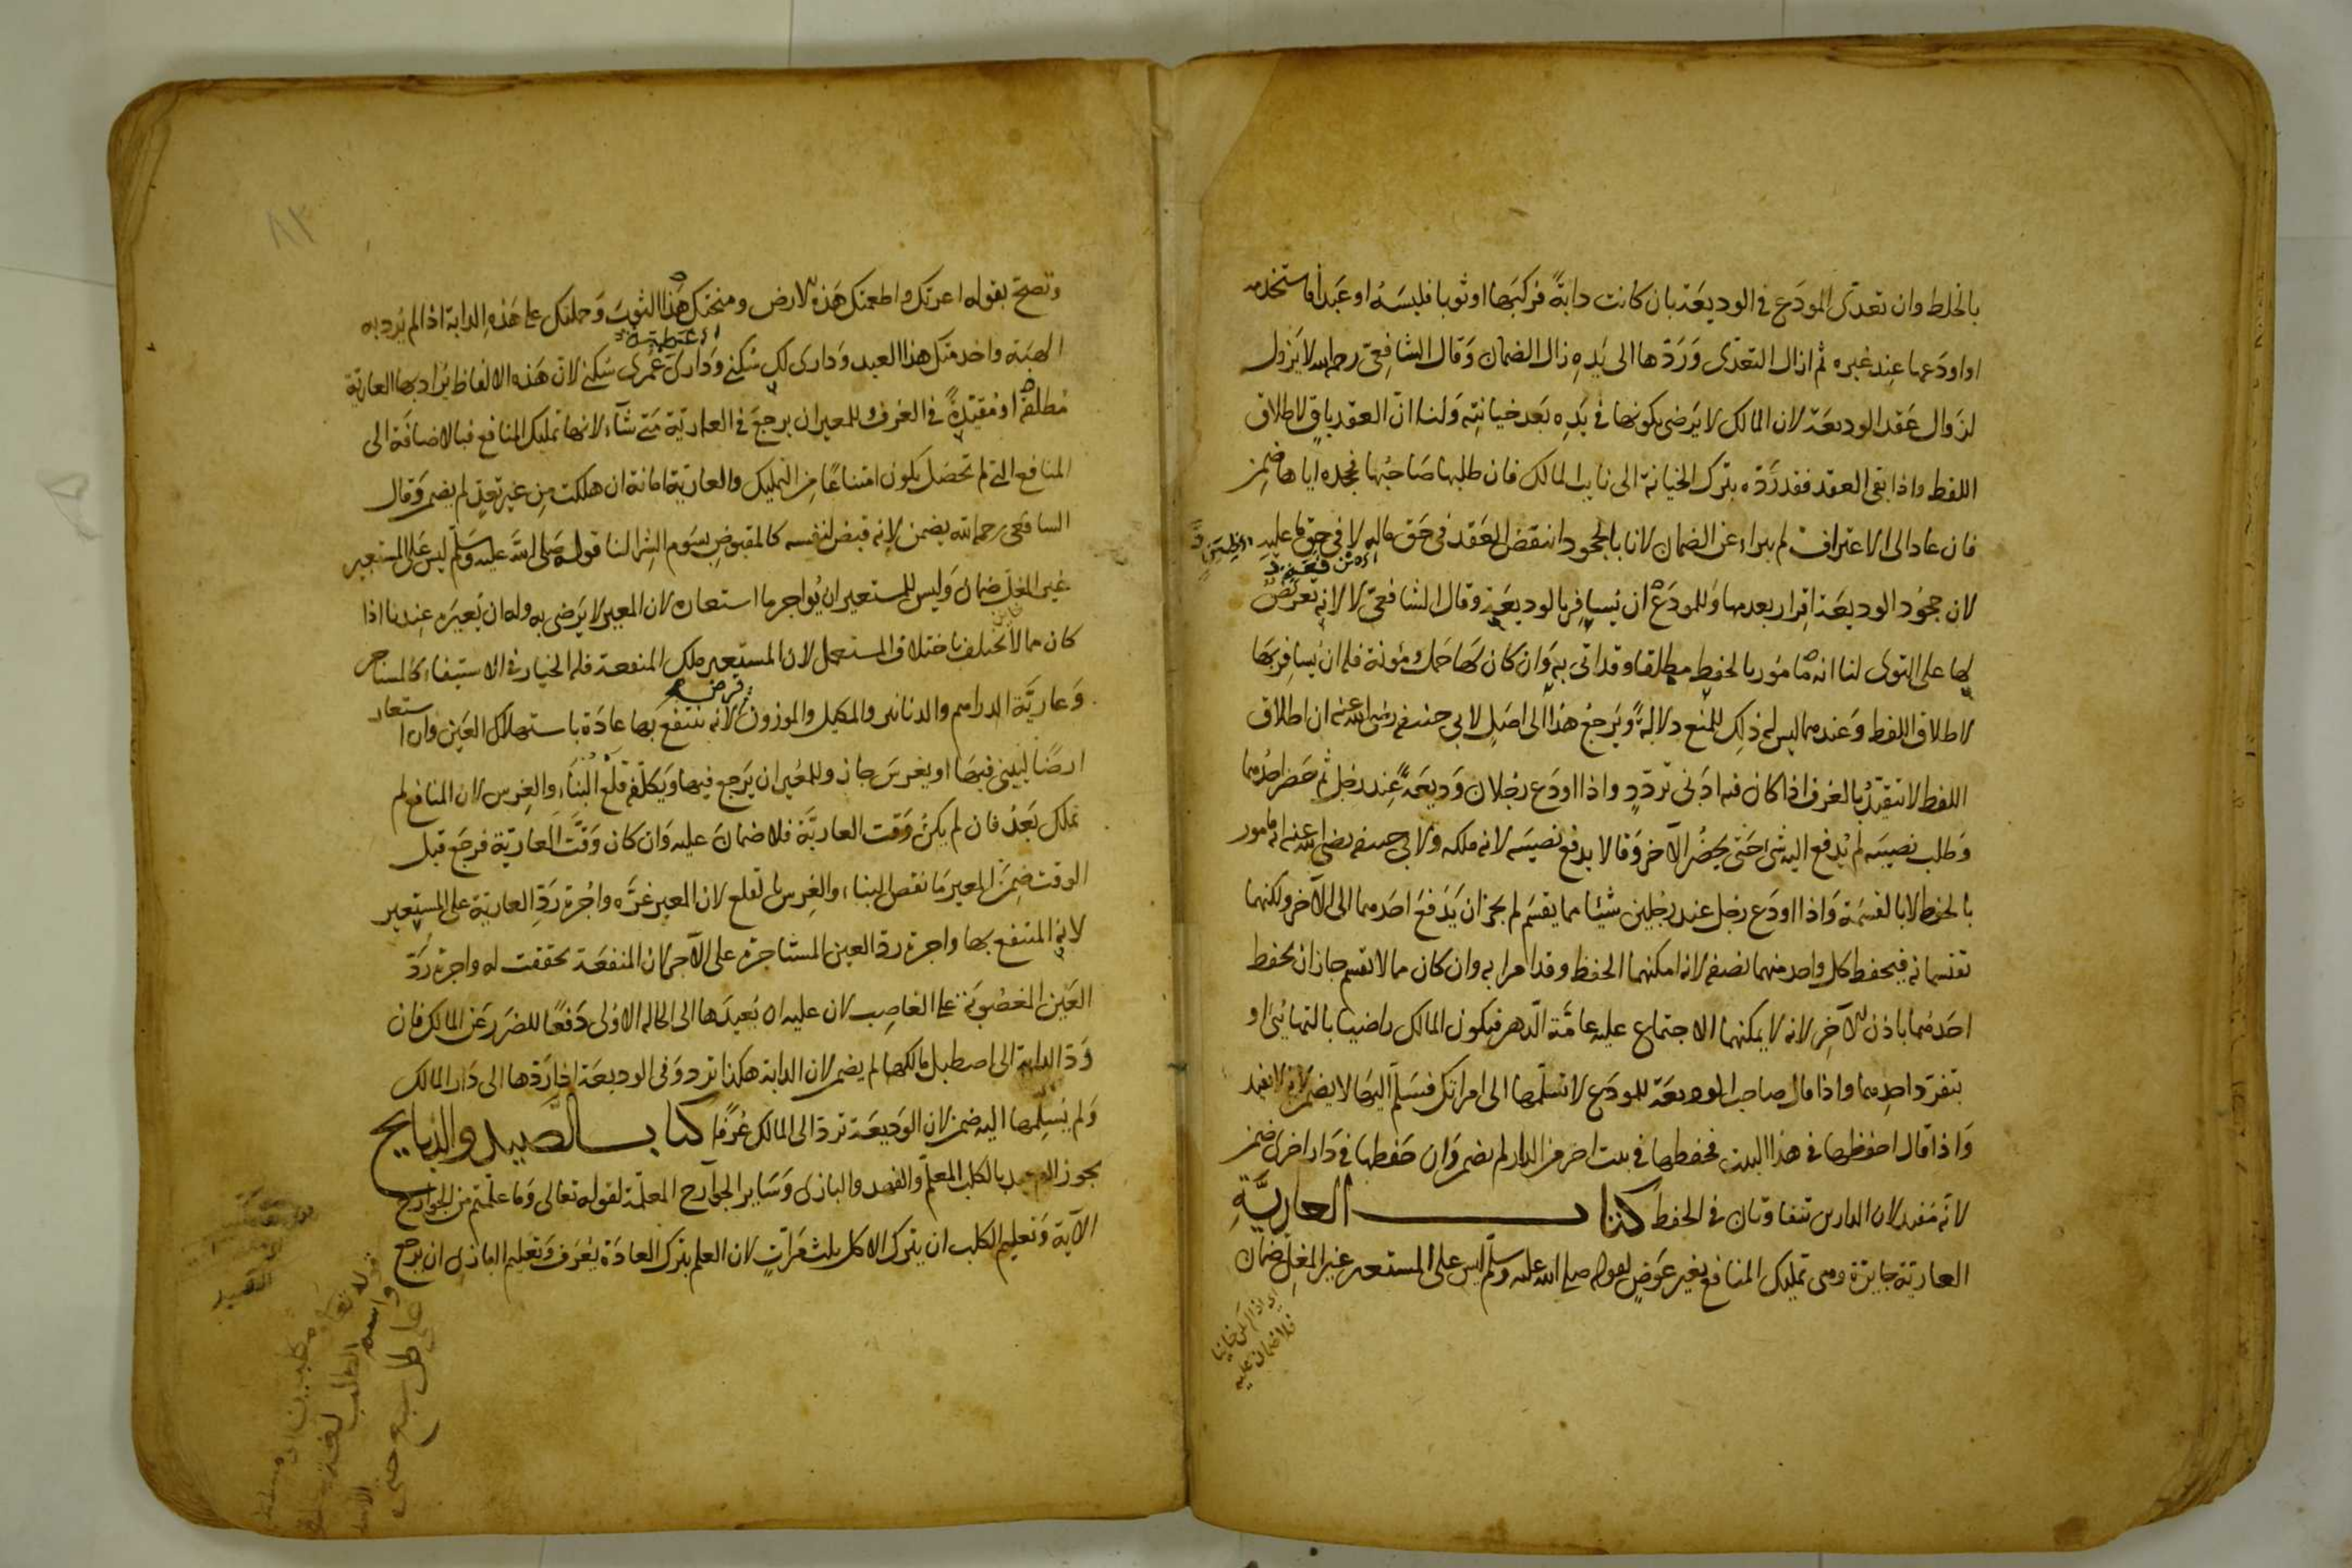 بالخلط وان تعدى المودَع في الوديعَة بان كانت دابةً فركبَها او ثوبا فلبسَهُ او عَبدًا فاستخدمه
او اودَعها عند غيره ثم ازال التعدّى وَرَدّها الى يَدِهِ زال الضمان وَقال الشافِعىّ رحمه الله لا يَزول
لزوال عَقد الوديعَة لان المالك لا يَرضى بكونها في يَدِه بَعد خيانتِه وَلنا انّ العقد باقٍ لاطلاق
اللفظ واذا بقى العقد فقد رَدّه بترك الخيانة الى نايب المالك فان طلبها صَاحبُها فجحده اياها ضمِنَ
فان عاد الى الاعتراف لم يبراء عن الضمان لان بالجحود انتقض العَقد في حَق ماله لا في حق ما عليهِ
لان جحوُد الوديعَة اقرار بعدمها وَللمودَع ان يُسافِر بالوديعَة وقال الشافعىّ لا لانه تعريض
لها على التوى لنا انه مامُور بالحفظِ مطلقا وقد اتى بهِ وَان كان لَها حَمل ومؤنة فله ان يسافِر بهَا
لاطلاق اللفظ وَعندهما ليس له ذلِك للمنع دلالةً وَيَرجعُ هَذا الى اصَلٍ لابي حنيفه رضى الله عنه ان اطلاق
اللفظ لا يتقيَّدُ بالعُرف اذا كان فيه ادَنى تردّدٍ واذا اودَع رَجُلان وَديعَةً عِند رجَل ثم حَضر احدُهما
وَطلب نصيبَه لم يُدفع اليه شى حَتى يحضُر الآخر وَقالا يدفع نصيبَه لانه ملكه ولابي حنيفه رضى الله عنه انه مامور
بالحفظ لا بالقسمَة وَاذا اودَع رجَل عند رجُلين شيئا مما يقسَم لم يجز ان يَدفعَ احَدهما الى الآخر ولكنهما
يقتسمانه فيحفظ كل واحد منهما نصفه لانه امكنهما الحفظ وقد امرا به وان كان مما لا يقسم جاز ان يحفظ
احَدهما باذن الآخِر لانه لا يمكنهما الاجتماع عليه عامَّة الدّهر فيكون المالك راضيا بالتهائىُ او
بتفرّد احدِهما واذا قال صاحب الوديعَة للمودَع لا تسلّمها الى امراتك فسَلم اليهَا لا يضمن لانه لا يفيد
وَاذا قال احفظها في هذا البيت فحفظها في بيت اخر من الدار لم يضمن وَان حَفظها في دَار اخرى ضمن
لانّه مُفيد لان الدارين تتفاوتان في الحفظ كتاب العاريَّةِ
العاريّة جايزة وهى تمليك المنافع بغير عَوضٍ لقوله صلى الله عليه وسلّم ليس على المستعير غير المغلّ ضمان
اى اذا لم يكن خاينا
فلا ضمان عليه
وتصحّ بقوله اعرتك واطعمتك هَذهِ الارض ومنحتك هَذا الثوبَ وَحملتك على هَذهِ الدابة اذا لم يُرد به
الهبَة واخدمتك هذا العبد وَدارى لك سُكنى وَدارى لك عُمرى سُكنى لان هَذه الالفاظ يُراد بها العاريّة
مُطلقةً او مُقيّدةً في العُرف وللمعير ان يرجعَ في العاريّة مَتى شآء لانها تمليك المنافع فبالاضافَة الى
المنافع التى لم تحصَل يكون امتناعًا مِن التمليك والعاريّة امانة ان هلكت مِن غير تعدٍ لم يضمن وَقال
الشافعى رحمه الله يضمن لانه قبض لنفسه كالمقبوضِ بسَوم الشرا لنا قوله صَلى الله عليه وَسَلّم ليس على المستعير
غير المغلّ ضمان وَليس للمستعير ان يُواجر ما استعاره لان المعير لا يَرضى به وله ان يُعيرَه عِندنا اذا
كان مما لا يختلف باختلاف المستعمل لان المستعير ملك المنفعة فله الخيار في الاستيفاء كالمستاجر
وَعاريَّة الدراهم والدنانير والمكيل والموزون قرض لانه ينتفع بها عادَة باستهلاك العَين وان استعار
ارضًا ليبنى فيهَا او يغرسَ جاز وللمُعير ان يَرجع فيها وَيَكلّفه قلع البنَآء والغِرس لان المنافع لم
تملك بَعَدُ فان لم يكنُ وَقت العاريَّة فلا ضمانَ عليه وَان كان وَقَّتَ العاريّة فرجَع قبل
الوقت ضمِنَ المعير مَا نقص البناء والغِرس بالقلع لان المعير غرَّه واجُرة رَدِّ العاريّة على المستعير
لانه المنتفع بها واجرة ردّ العين المستاجرة على الآجر لان المنفعَة تحققت له واجرة رَدّ
العَين المغصُوبَة على الغاصِب لان عليه ان يُعيدَها الى الحاله الاوُلى دَفعًا للضرَر عَن المالك فان
رَدّ الدابة الى اصطبل مالكها لم يضمن لان الدابة هكذا ترد وَفى الوديعَة اذا رَدّها الى دَار المالك
وَلم يُسلِّمها اليه ضمن لان الوَديعَة تردّ الى المالك عُرفًا كتاب الصَّيد والذبايح
يجوز الصيد بالكلب المعلّم والفهد والبازى وَسَاير الجوارح المعلّمة لقوله تعالى وَما علّمتم من الجوارح
الآية وَتعليم الكلب ان يترك الاكل ثلث مَرّاتٍ لان العلم بترك العادَة يُعرَف وَتعليم البازى ان يرجع